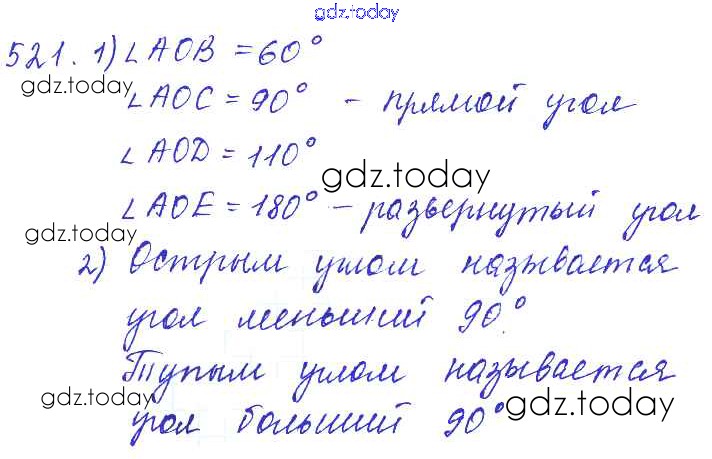 gdz.today
521. 1) ∠AOB = 60°
gdz.today
∠AOC = 90° - прямой угол
∠AOD = 110°
gdz.today
∠AOE = 180° - развернутый угол
gdz.today
2) Острым углом называется
угол меньший 90°.
Тупым углом называется
gdz.today
gdz.today
угол больший 90°